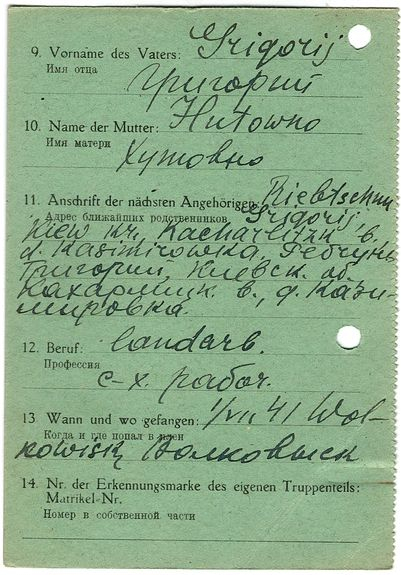 9. Vorname des Vaters: Grigorij
Имя отца
Григорий
10. Name der Mutter: Hutowno
Имя матери
Хутовно
11. Anschrift der nächsten Angehörigen
Адрес ближайших родственников Grigorij,
Kiew kr. Kacharlitzk b.
d. Kasimirowka,
Григории, Киевск. об.
Кахарлицк. в., д. Кази-
мировка.
12. Beruf: landarb.
Профессия
с-х. рабоч.
13 Wann und wo gefangen: 1/VII 41 Wol-
Когда и где попал в плен
kowisk Волковыск
14. Nr. der Erkennungsmarke des eigenen Truppenteils:
Matrikel-Nr.
Номер в собственной части